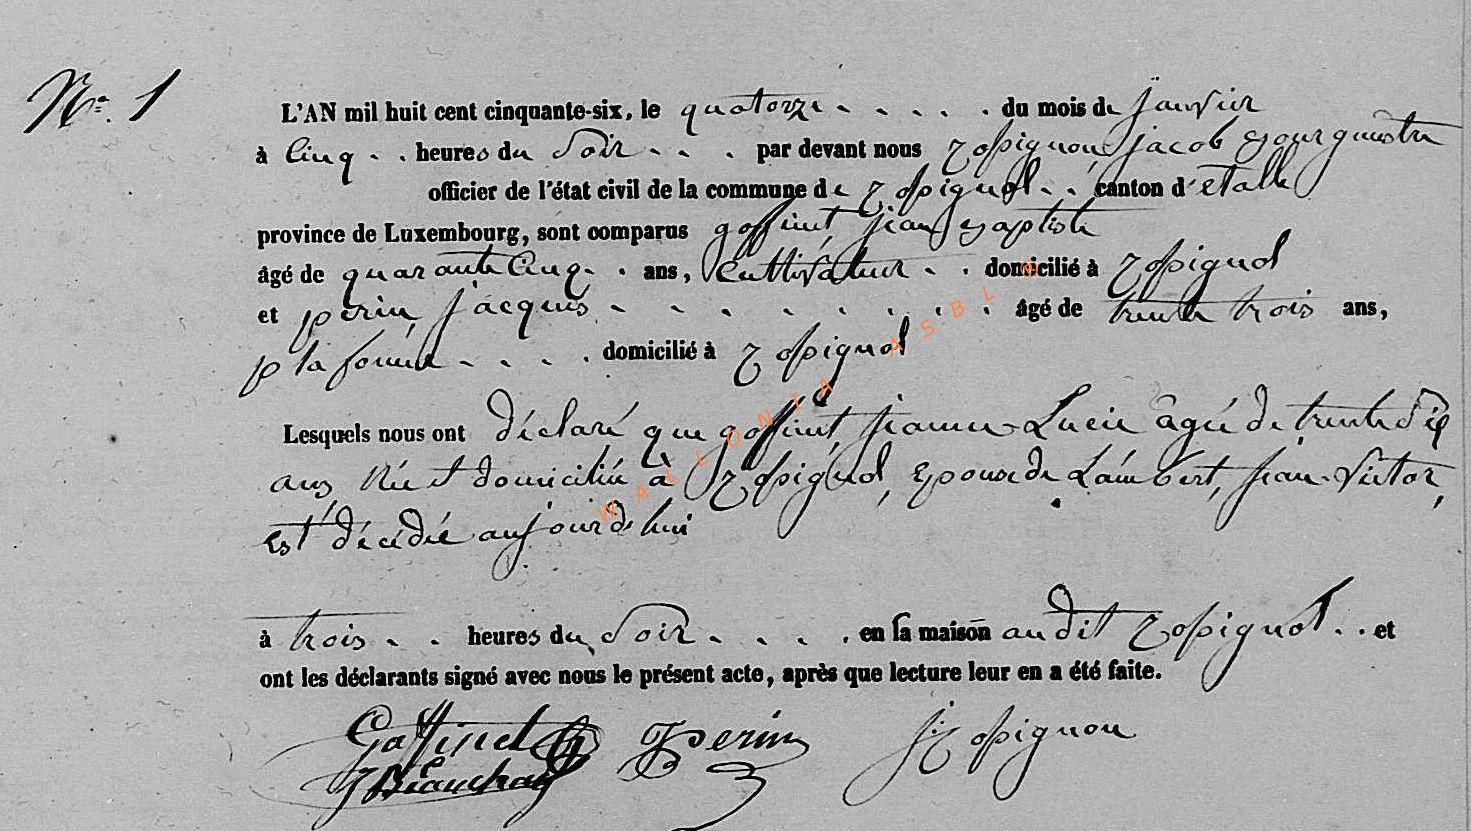 No. 1
L'AN mil huit cent cinquante-six, le quatorze . . . . . du mois de janvier
à Cinq . . heures du Soir . . . par devant nous Rossignon, jacob Bourguestre
officier de l'état civil de la commune de Rossignol . . canton d'étalle
province de Luxembourg, sont comparus goffinet, jean Baptiste
âgé de quarante Cinq . . ans, Cultivateur . . domicilié à Rossignol
et perin, jacques . . . . . . . . . . âgé de trente trois ans,
plafoneur . . . . domicilié à Rossignol
Lesquels nous ont déclaré que goffinet, jeanne Lucie âgée de trente Six
ans, Née et domiciliée à Rossignol, Epouse de Lambert, jean Victor,
Est décédée aujourd'hui
à trois . . heures du Soir . . . . en sa maison audit Rossignol . . et
ont les déclarants signé avec nous le présent acte, après que lecture leur en a été faite.
Goffinet Perin j: Rossignon
JB
WALLONIA ASBL